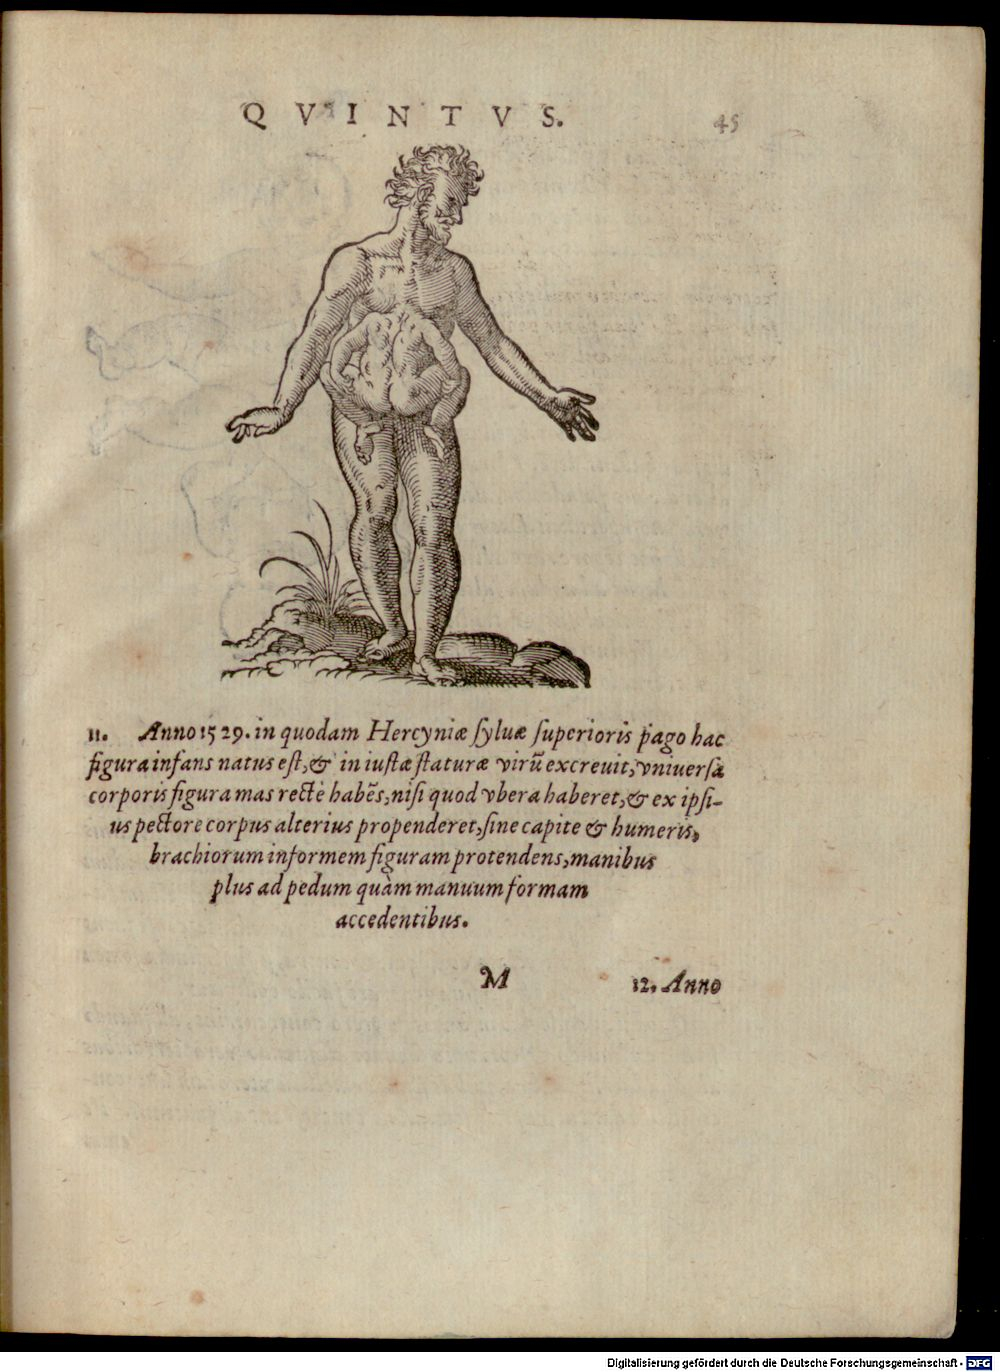 QVINTVS. 45
11. Anno 1529. in quodam Hercyniæ ſyluæ ſuperioris pago hac
figura infans natus eſt, & in iuſtæ ſtaturæ virũ excreuit, vniuerſa
corporis figura mas rectè habẽs, niſi quod vbera haberet, & ex ipſi-
us pectore corpus alterius propenderet, ſine capite & humeris,
brachiorum informem figuram protendens, manibus
plus ad pedum quàm manuum formam
accedentibus.
M 12. Anno
Digitalisierung gefördert durch die Deutsche Forschungsgemeinschaft - DFG